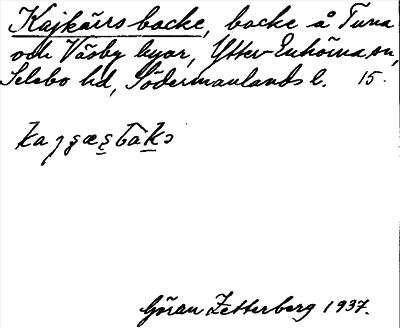 Kajkärrs backe, backe å Tuna
och Väsby byar, Ytter Enhörna sn,
Selebo hd, Södermanlands l. 15.
Göran Zetterberg 1937.